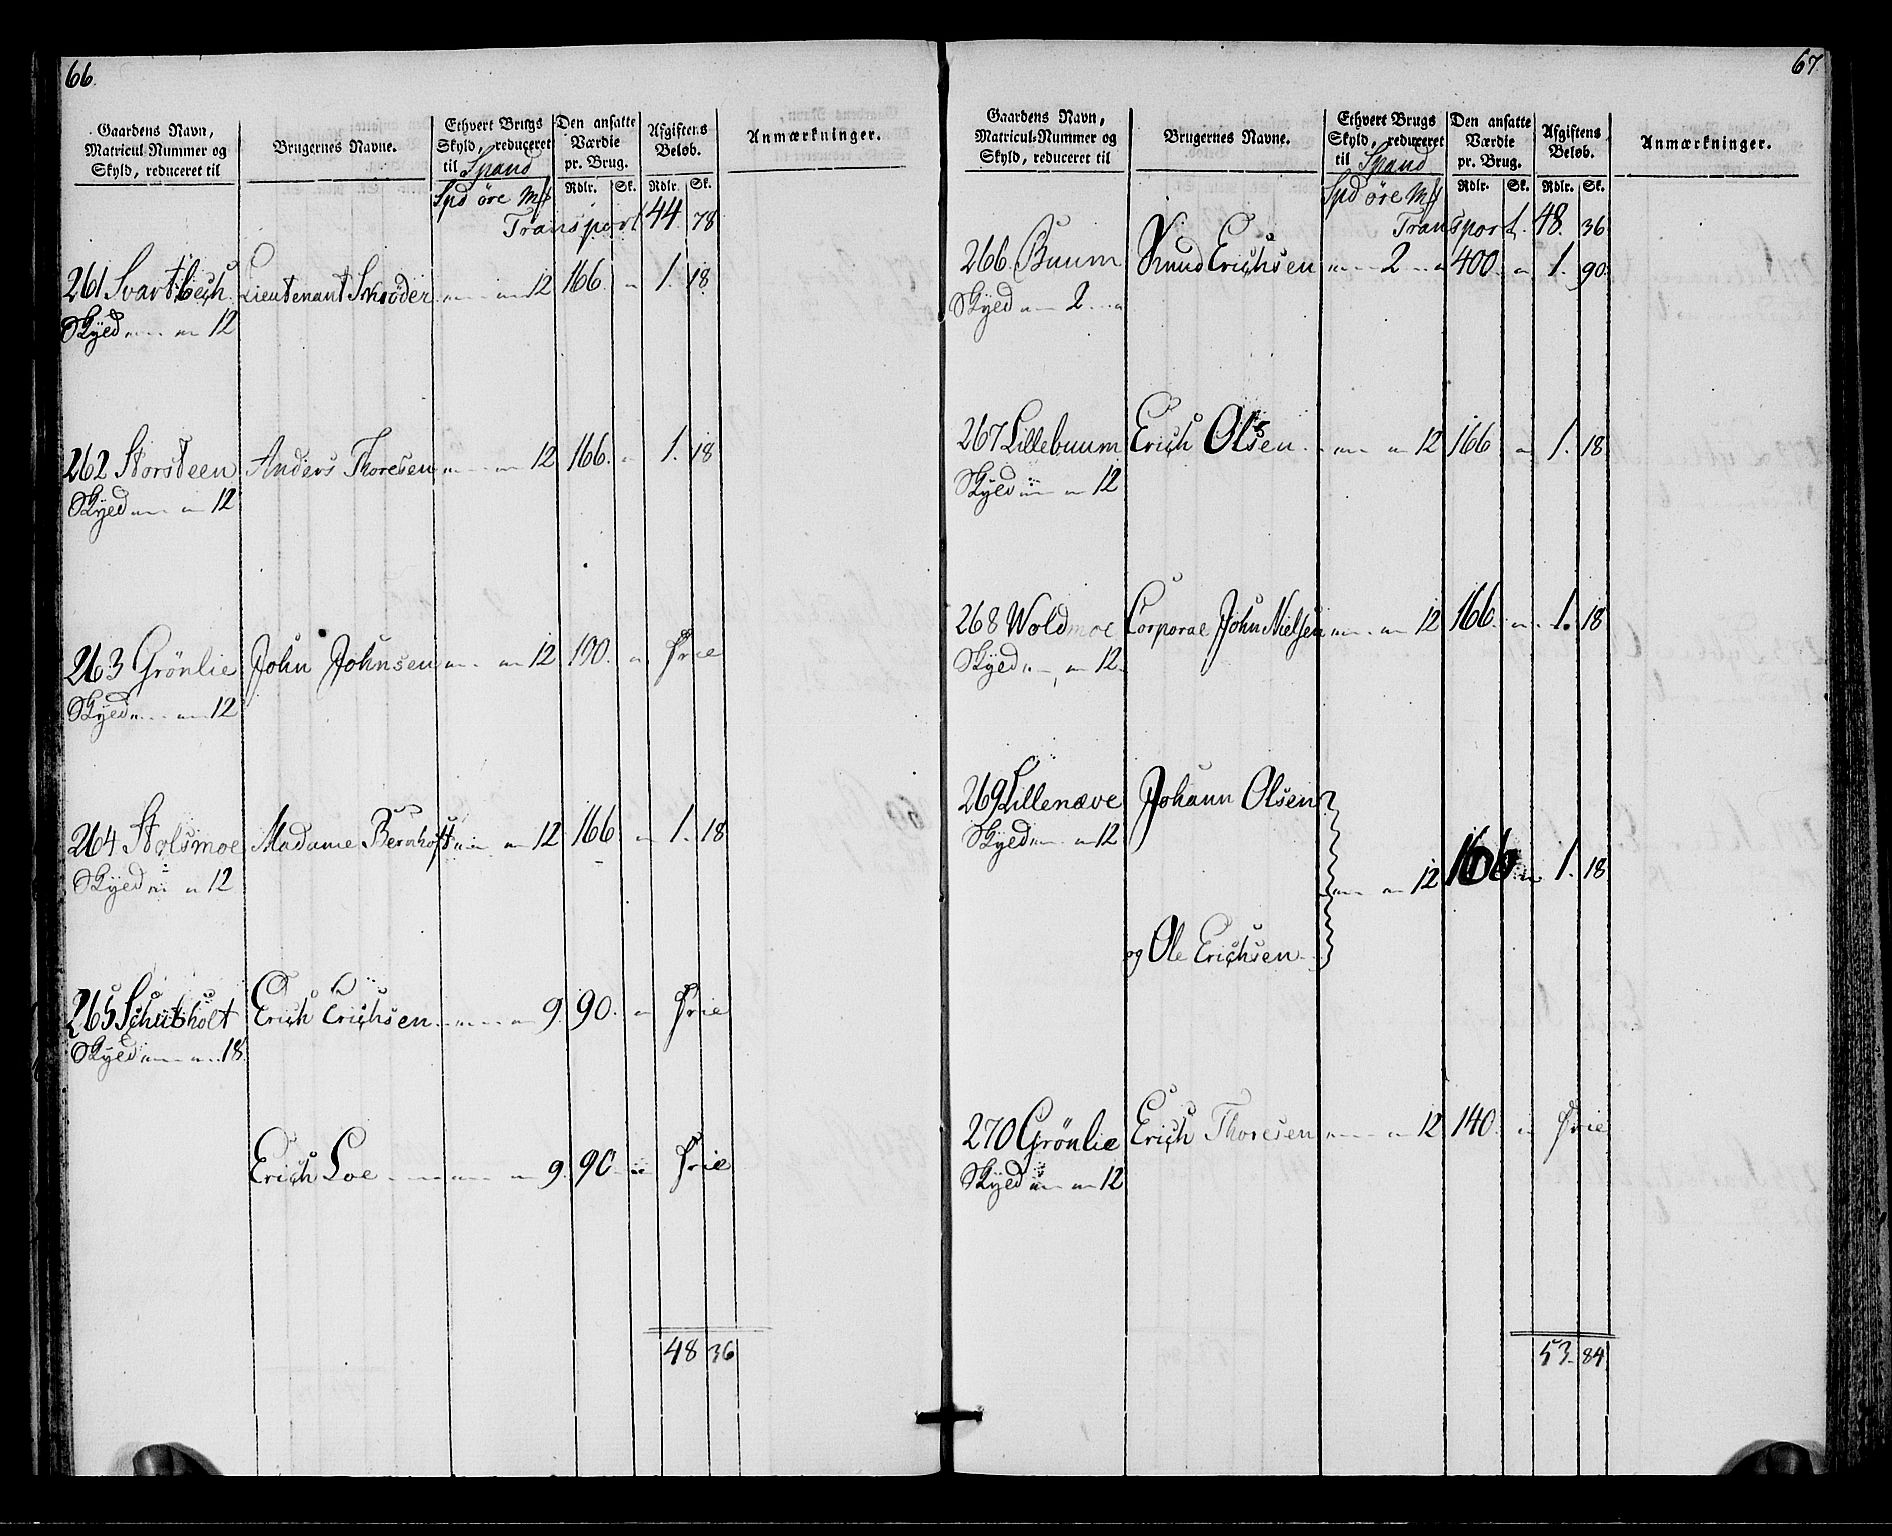 66.
Gaardens Navn, Matricul-Nummer og Skyld, reduceret til | Brugernes Navne. | Ethvert Brugs Skyld, reduceret til Spand | Den ansatte Værdie pr. Brug. | Afgiftens Beløb. | Anmærkninger.
Spd øre M# | Rdlr. | Sk. | Rdlr. | Sk.
Transport 44. 78
261 Svartbech. Lieutenant Schrøder 12 166. 1. 18.
Skyld 12
262 Storsteen Anders Thoresen 12 166. 1. 18
Skyld 12
263 Grönlie John Johnsen 12 100. Frie
Skyld 12
264 Stolsmoe Madame Bernhoft 12 166. 1. 18
Skyld 12
265 Erich Erichsen 9. 90. Frie
Skyld 18.
Erich Loe 9. 90. Frie
48 36
67.
Gaardens Navn, Matricul-Nummer og Skyld, reduceret til | Brugernes Navne. | Ethvert Brugs Skyld, reduceret til Spand | Den ansatte Værdie pr. Brug. | Afgiftens Beløb. | Anmærkninger.
Spd øre M# | Rdlr. | Sk. | Rdlr. | Sk.
Transport. 48. 36
266. Buum Knud Erichsen 2 400. 1. 90.
Skyld 2
267 Lillebuum Erich Olsen 12 166 1. 18
Skyld 12
268 Woldmoe Corporal John Nielsen 12 166. 1. 18
Skyld 12.
269 Lillenæve Johann Olsen
Skyld 12
12 166 1. 18
og Ole Erichsen
270 Grönlie Erich Thoresen 12 140. Frie
Skyld 12
53. 84